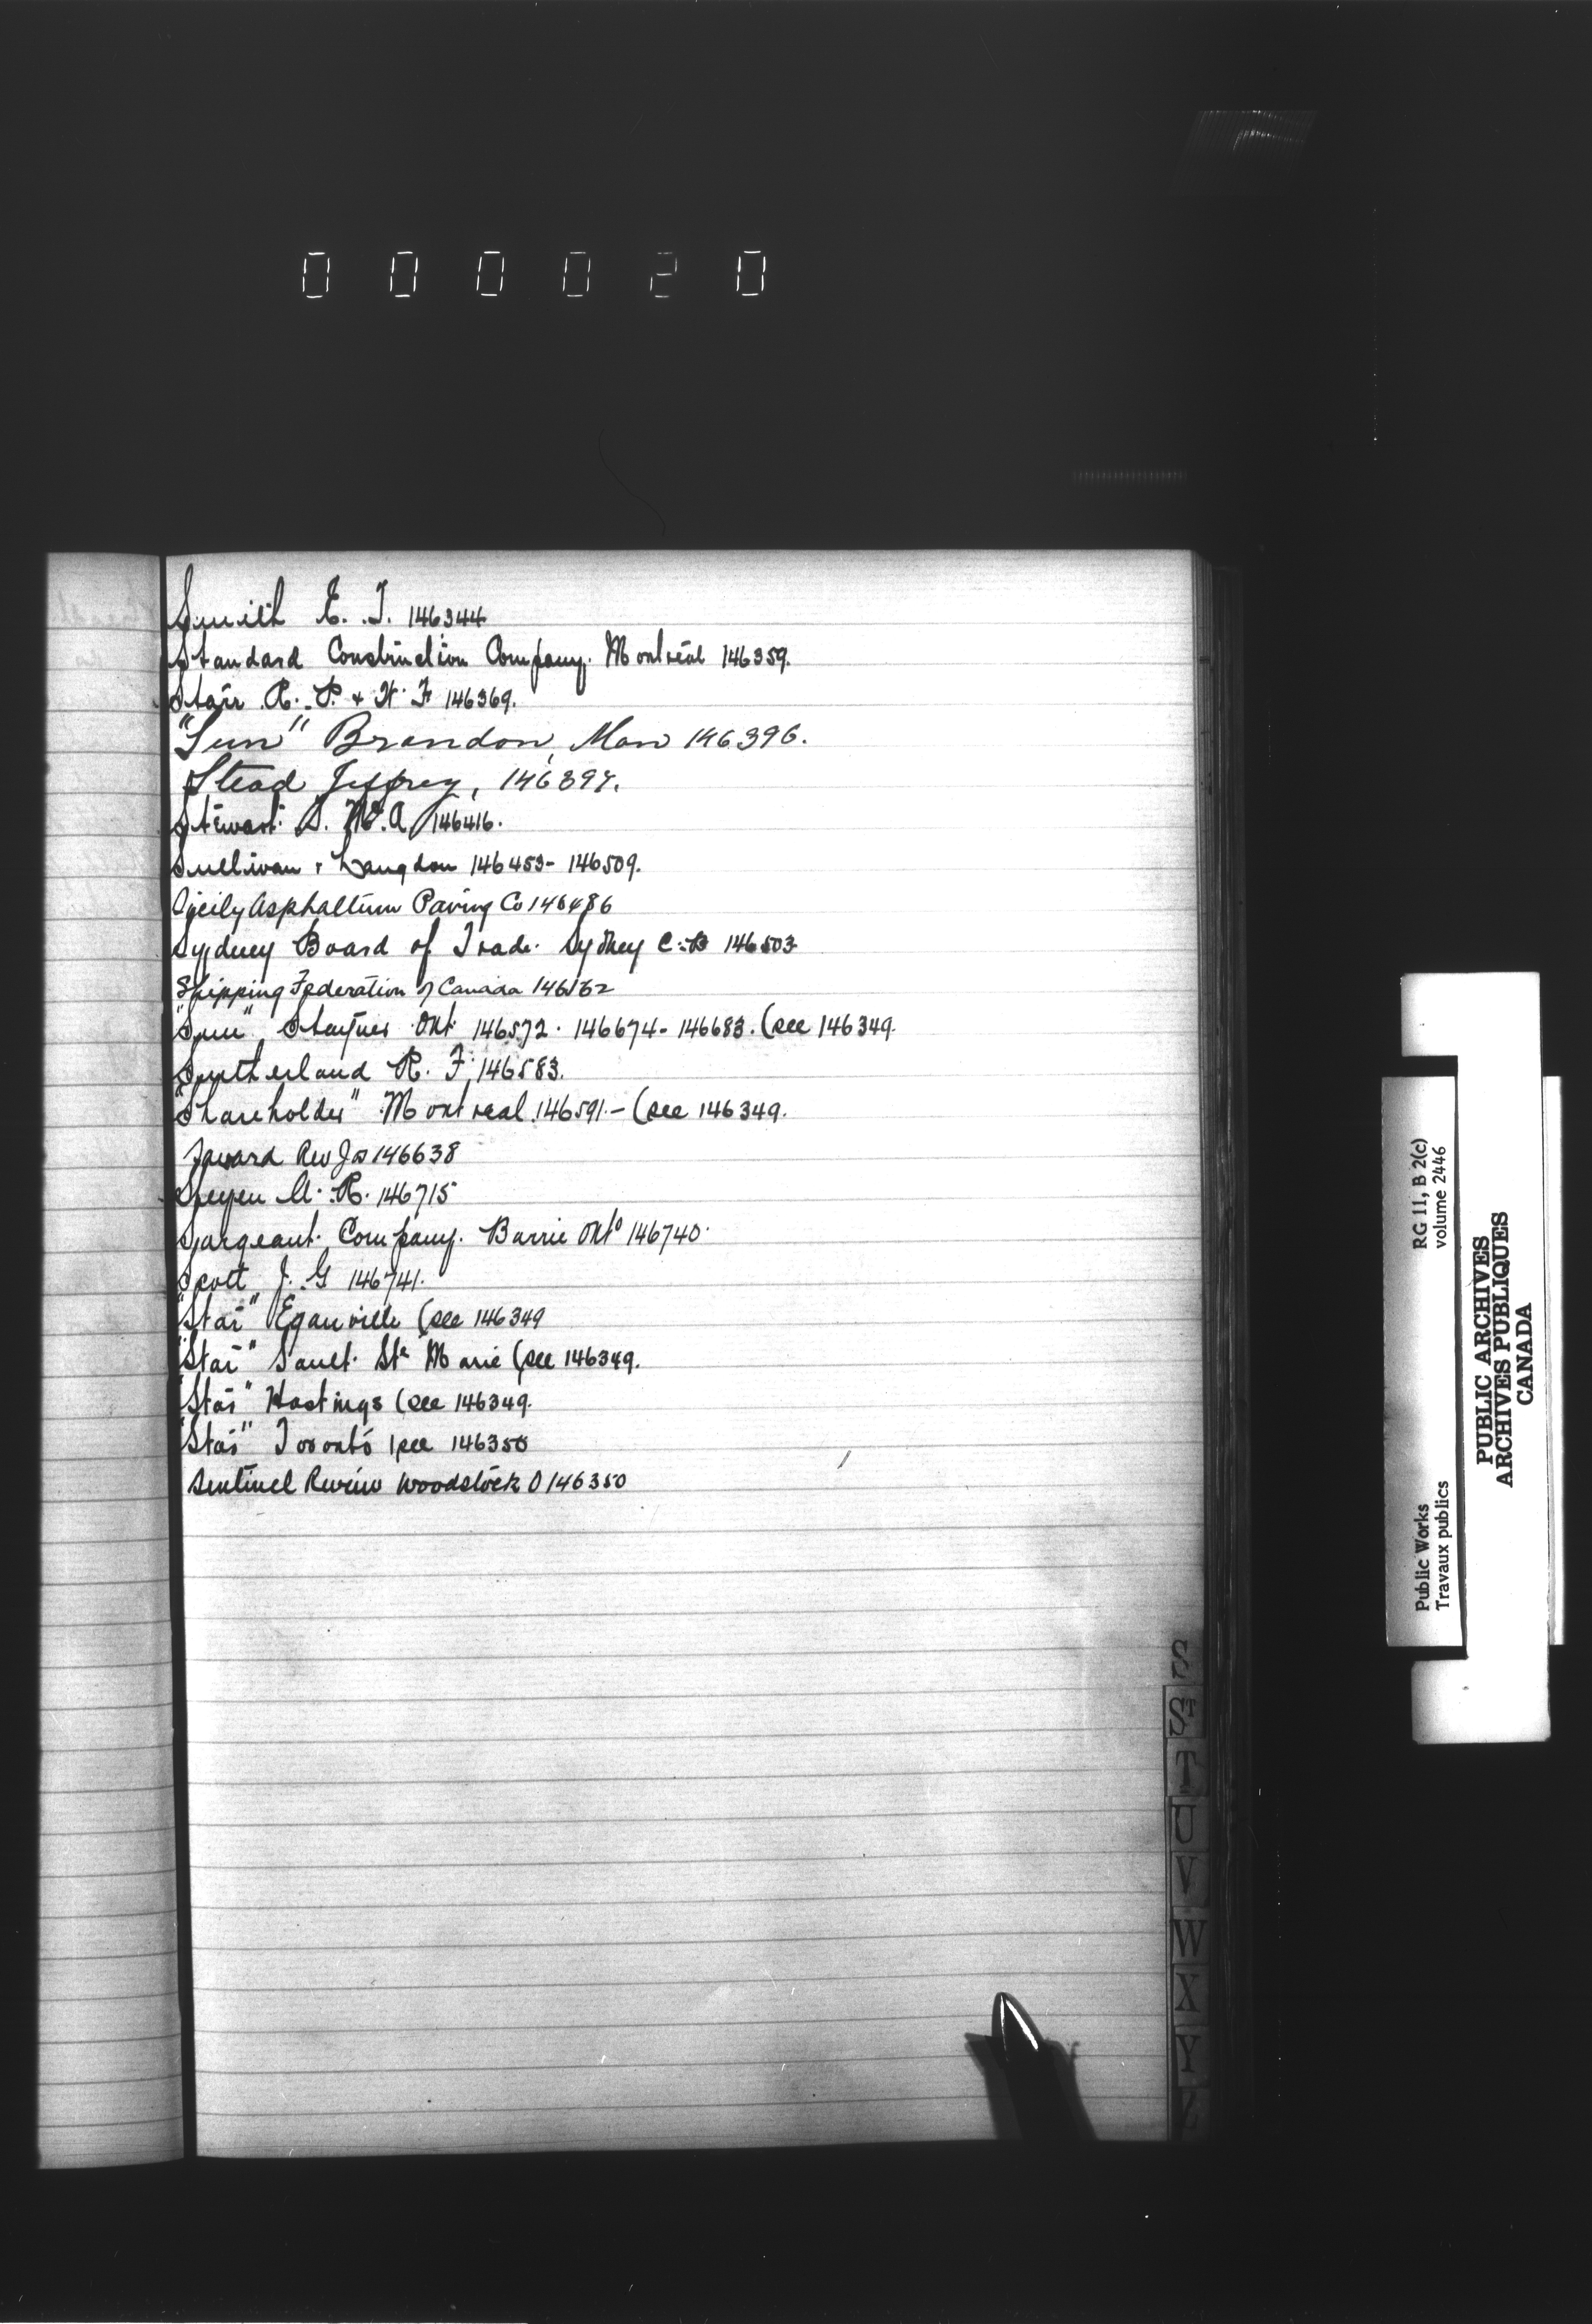 000020
Smith E. T. 146344
Standard Construction Company. Montreal 146359.
Starr R. P. & W. F 146369.
"Sun" Brandon, Man 146396.
Stead Jeffrey, 146397.
Stewart S. McA 146416.
Sullivan & Langdon 146453 - 146509.
Sicily Asphaltum Paving Co 146486
Sydney Board of Trade. Sydney C.B 146503
Shipping Federation of Canada 146562
"Sun" Stayner Ont 146572. 146674 - 146683. (see 146349.
Sutherland R. F. 146583.
"Shareholder" Montreal 146591 - (see 146349.
Savard Rev Jos 146638
R. 146715
Sargeant Company. Barrie Ont⁰ 146740.
Scott J. G 146741.
"Star" Eganville (see 146349
"Star" Sault Ste Marie (see 146349.
"Star" Hastings (see 146349.
"Star" Toronto (see 146350
Sentinel Review Woodstock O 146350
S
ST
T
U
V
W
X
Y
Z
Public Works
Travaux publics
RG 11, B 2(c)
volume 2446
PUBLIC ARCHIVES
ARCHIVES PUBLIQUES
CANADA